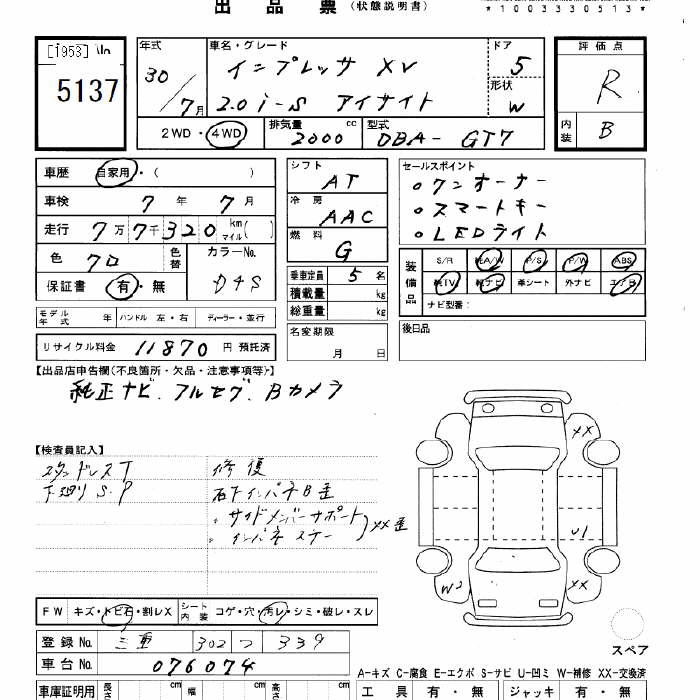 出品票（状態説明書）
*1003330513*
[1953]
5137
年式 30/7月
車名・グレード インプレッサ XV
2.0i-S アイサイト
ドア 5
形状 W
評価点 R
内装 B
2WD・4WD
排気量 2000 cc
型式 DBA-GT7
車歴 自家用・( )
車検 7年 7月
走行 7万7千320 km マイル( )
色 クロ 色替
カラーNo. D4S
保証書 有・無
シフト AT
冷房 AAC
燃料 G
乗車定員 5名
積載量 kg
総重量 kg
セールスポイント
○ワンオーナー
○スマートキー
○LEDライト
装備品 S/R 純A/W P/S P/W ABS
純TV 純ナビ 革シート 外ナビ エアB
ナビ型番：
モデル年式 年 ハンドル 左・右 ディーラー・並行
名変期限 月 日
後日品
リサイクル料金 11870円 預託済
【出品店申告欄(不良箇所・欠品・注意事項等)】
純正ナビ.フルセグ.Bカメラ
【検査員記入】
スタッドレスT
下廻りS.P
修復
右Fインパネ B歪
〃 サイドメンバーサポート
〃 インパネ ステー
XX歪
XX
U1
W2
XX
スペア
FW キズ・トビ石・割レX
シート内装 コゲ・穴・汚レ・シミ・破レ・スレ
登録No. 三重 302 つ 339
車台No. 076074
A-キズ C-腐食 E-エクボ S-サビ U-凹ミ W-補修 XX-交換済
車庫証明用 長さ cm 幅 cm 高さ cm
工具 有・無 ジャッキ 有・無